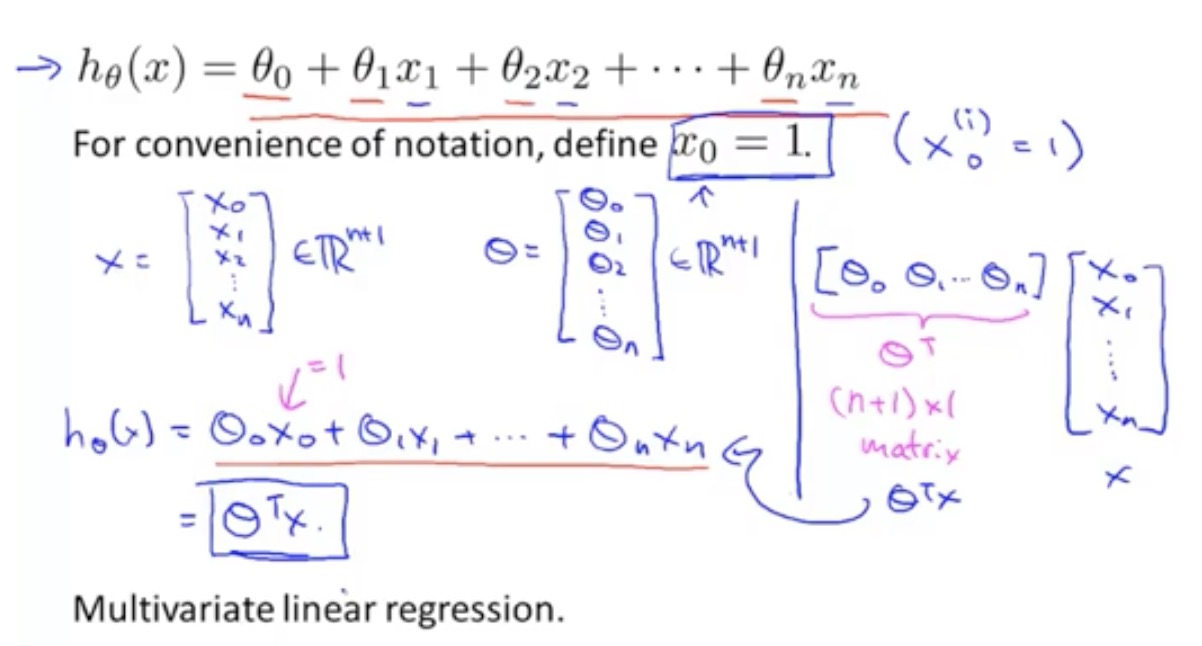 → hθ(x) = θ0 + θ1x1 + θ2x2 + ··· + θnxn
For convenience of notation, define x0 = 1. (x0^(i) = 1)
x = [x0 x1 x2 ⋮ xn] ∈ ℝ^(n+1) θ = [θ0 θ1 θ2 ⋮ θn] ∈ ℝ^(n+1)
[θ0 θ1 ··· θn] [x0 x1 ⋮ xn]
θ^T
(n+1)×1
matrix
x
θ^T x
=1
hθ(x) = θ0x0 + θ1x1 + ··· + θnxn
= θ^T x.
Multivariate linear regression.